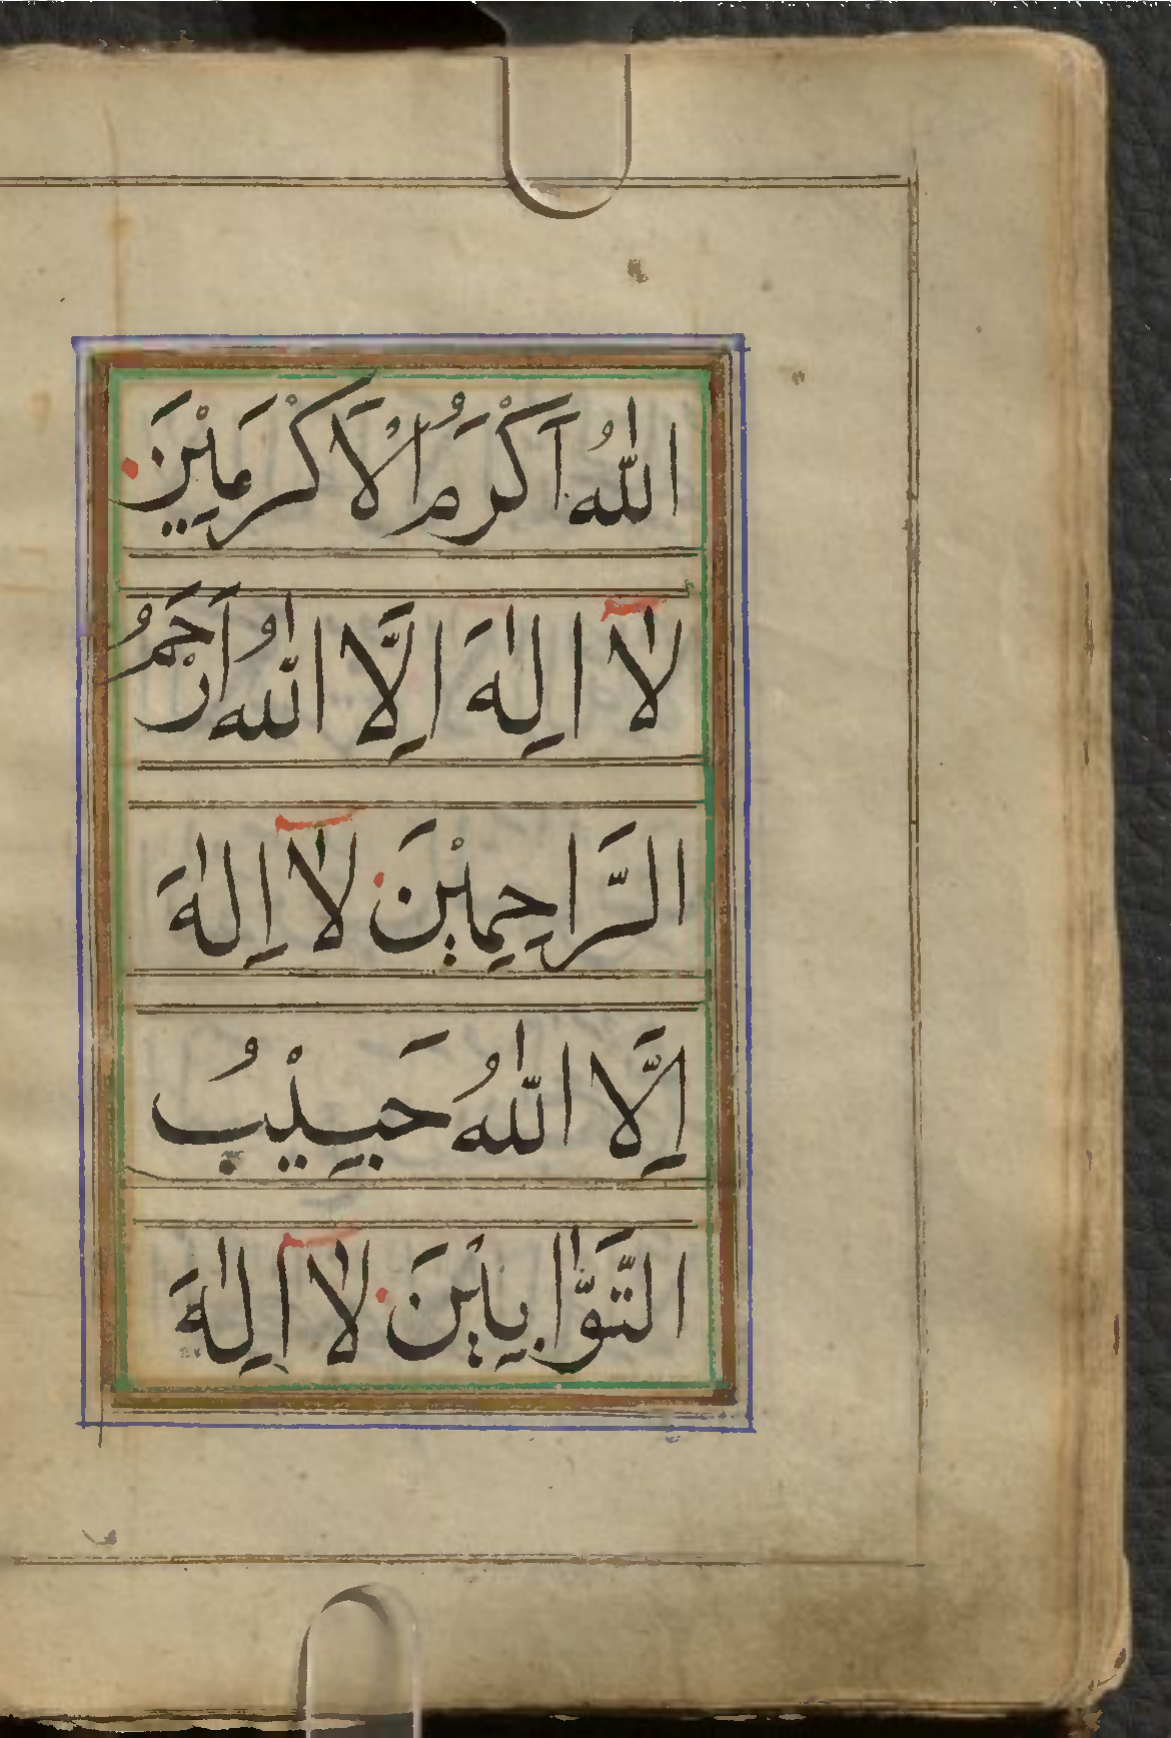 اللّٰهُ اَكْرَمُ الْاَكْرَمِيْنَ
لَا اِلٰهَ اِلَّا اللّٰهُ اَرْحَمُ
الرَّاحِمِيْنَ لَا اِلٰهَ
اِلَّا اللّٰهُ حَبِيْبُ
التَّوَّابِيْنَ لَا اِلٰهَ